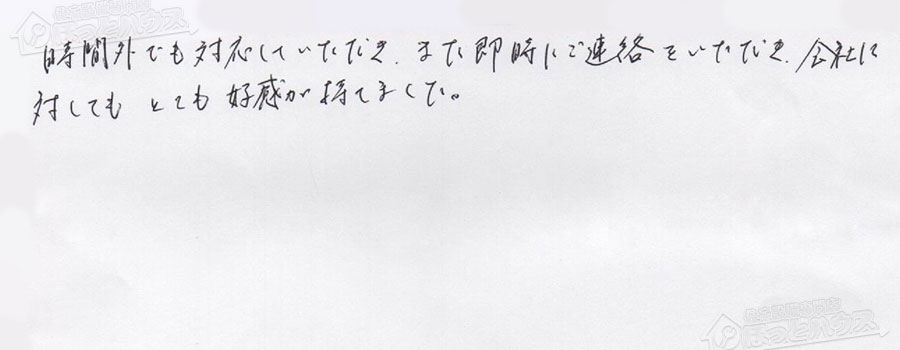 時間外でも対応していただき、また即時にご連絡をいただき、会社に
対しても とても好感が持てました。
ほっとハウス
ほっとハウス